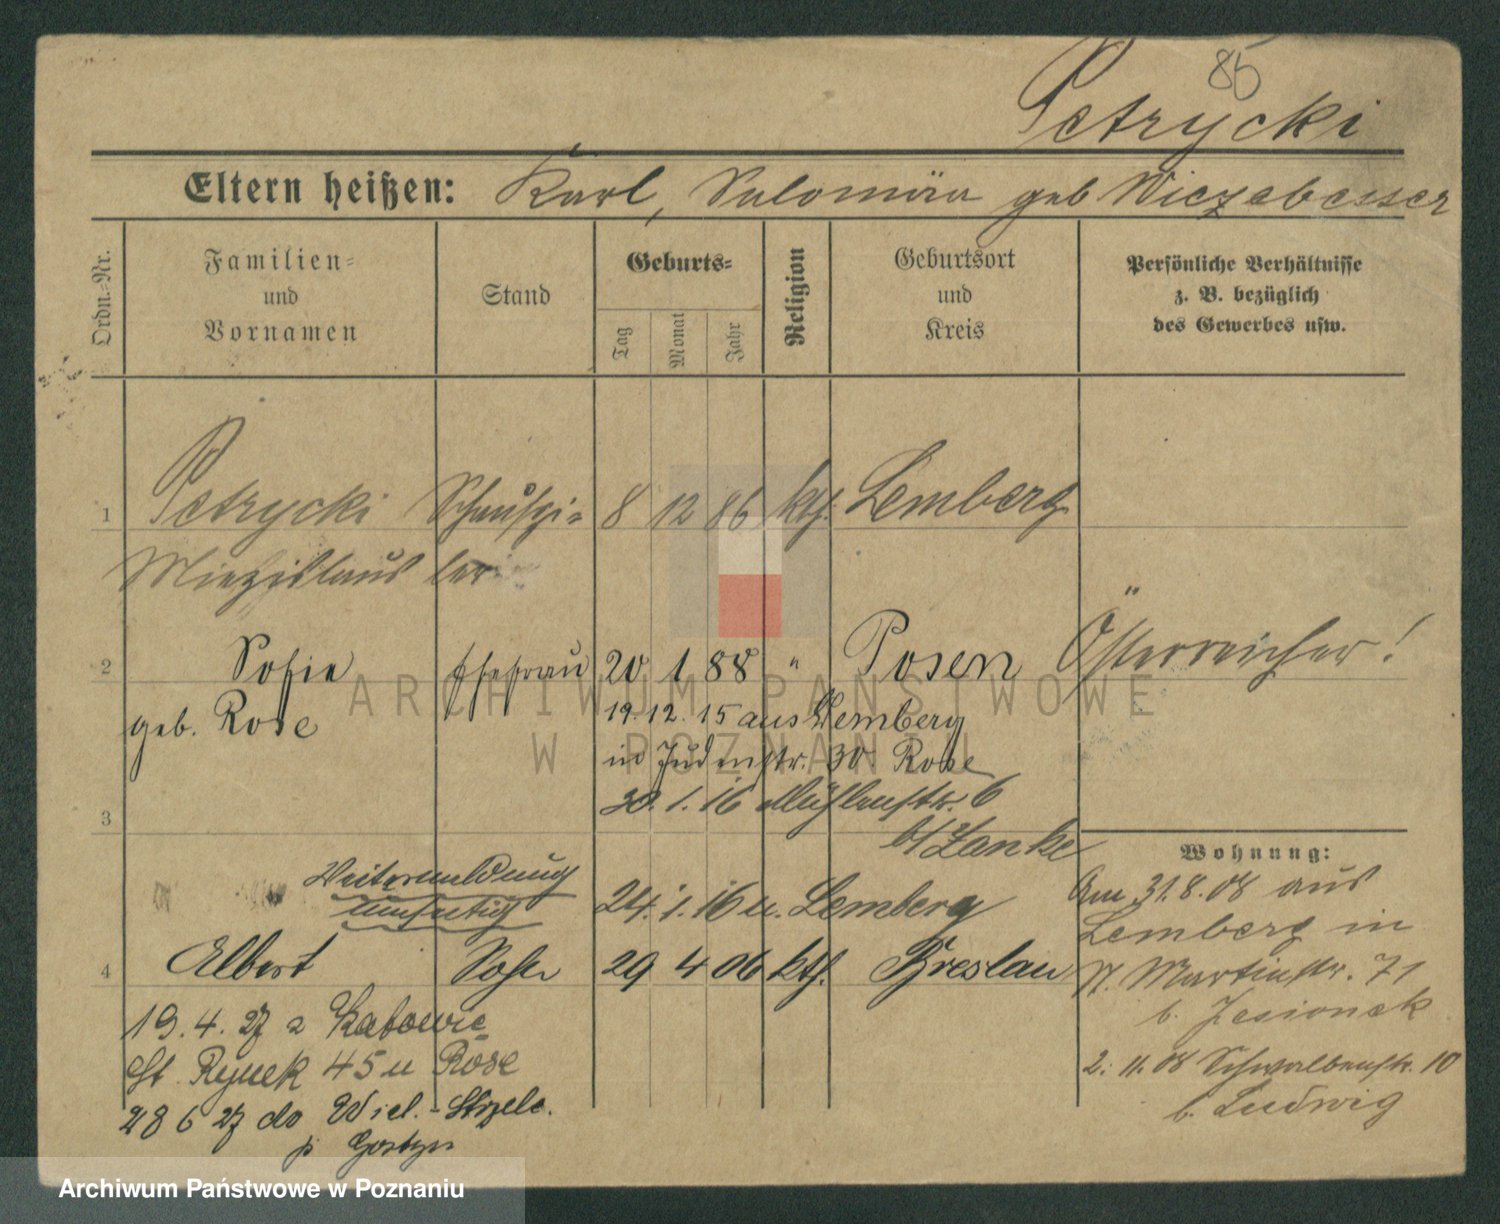 85
Petrycki
Eltern heißen: Karl, Salomäa geb
Ordn.-Nr.
Familien-
und
Vornamen
Stand
Geburts-
Tag
Monat
Jahr
Religion
Geburtsort
und
Kreis
Persönliche Verhältnisse
z. B. bezüglich
des Gewerbes usw.
1 Petrycki Schauspi- 8 12 86 kth. Lemberg
Miezislaus ler
2 Sofie Ehefrau 20 1 88 " Posen Österreicher!
geb. Rose
19. 12. 15 aus Lemberg
in Judenstr. 30 Rose
30. 1. 16 Mühlenstr. 6
3
b/ Zanke
Wohnung:
Weitermeldung
24. 1. 16 n. Lemberg
Am 31.8.08 aus
Lemberg in
4 Albert Sohn 29 4 06 kth. Breslau
St. Martinstr. 71
b. Jesionek
19. 4. 27 z Katowic
St. Rynek 45 u Rose
2. 11. 08 Schwalbenstr. 10
b. Ludwig
28 6 27 do Wiel.-Strzelc.
p Gostyn
ARCHIWUM PAŃSTWOWE
W POZNANIU
Archiwum Państwowe w Poznaniu